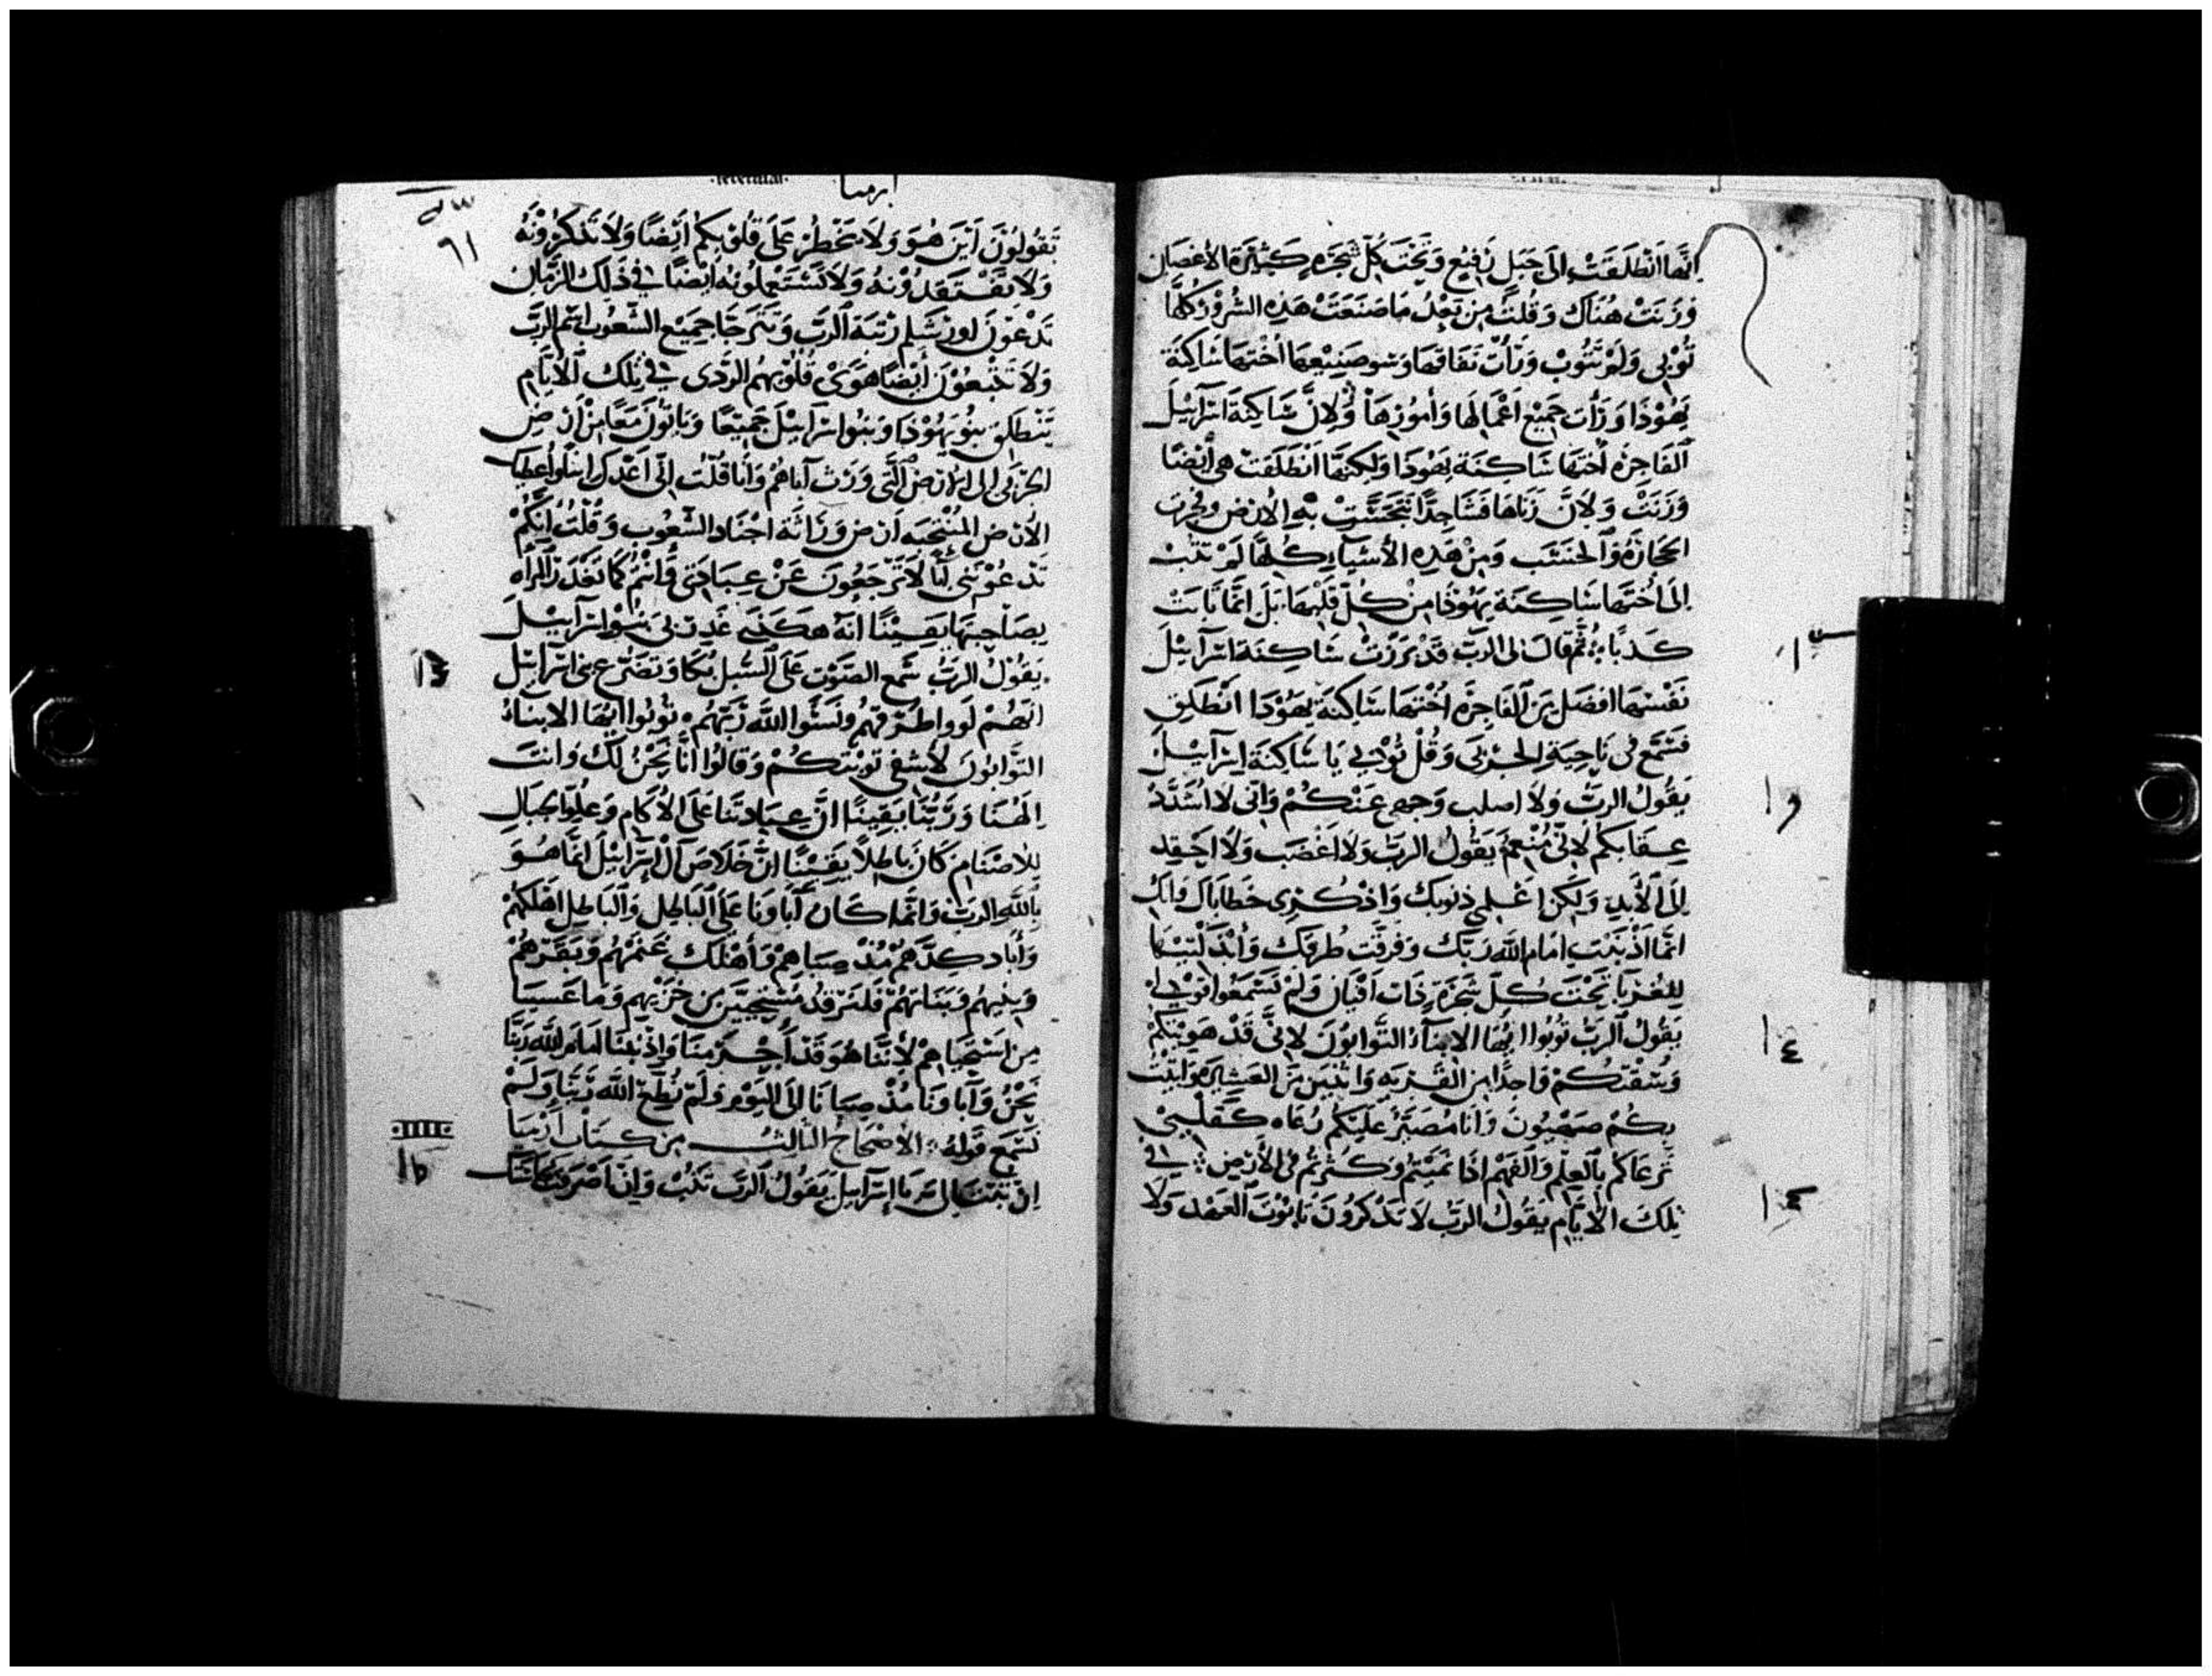 انها انطلقت الى جبل رفيع وتحت كل شجره كثيرة الاغصان
وزنت هناك وقلت من بعد ما صنعت هذه الشرور كلها
توبى ولم تتوب ورأت نفاقها وسو صنيعها اختها ساكنة
يهودا ورأت جميع اعمالها وأمورها ولان ساكنة اسرآييل
الفاجرة اختها ساكنة يهودا ولكنها انطلقت هى أيضا
وزنت ولان زناها فشا جدا تنجست به الارض
الحجارة والخشب ومن هذه الأشيآء كلها لم تتب
الى اختها ساكنة يهوذا من كل قلبها بل انما تابت
كذبا ثم قال لى الرب قد بررت ساكنة اسرآييل
نفسها افضل من الفاجرة اختها ساكنة يهودا انطلق
فسمع فى ناحية الجربى وقل توبى يا ساكنة اسرآييل
يقول الرب ولا اصلب وجهى عنكم وانى لا اشدد
عقابكم لانى منعم يقول الرب ولا اغضب ولا احقد
الى الأبد ولكن اعلمى ذنوبك واذكرى خطاياك وانك
انما اذنبت امام الله ربك وفرقت طرقك
للغربا تحت كل شجرة ذات افنان ولم تسمعوا قولى
يقول الرب توبوا ايها الابنآء التوابون لانى قد هويتكم
وسقتكم واحدا من القرية واثنين من العشيرة واتيت
بكم صهيون وانا مصير عليكم رعاه كقلبى
ترعاكم بالعلم والفهم اذا نميتم وكثرتم فى الأرض فى
تلك الايام يقول الرب لا تذكرون تابوت العهد ولا
ارميا
٩١
تقولون اين هو ولا يخطر على قلوبكم أيضا ولا تذكرونه
ولا تفتقدونه ولا تستعملونه ايضا فى ذلك الزمان
تدعون اورشلم زتبة الرب وتترجا جميع الشعوب اسم الرب
ولا تتبعون أيضا هوى قلوبهم الردى فى تلك الايام
ينطلق بنو يهوذا وبنوا اسرآييل جميعا وياتون معا من ارض
الجربى الى الارض التى ورث آباهم وأنا قلت انى اعدك ابنا واعطيك
الارض المنتخبه ارض وراثة اجناد الشعوب وقلت انكم
تدعوننى ابا لا ترجعون عن عبادتى وأنتم كما تغدر المرأه
بصاحبها يقينا انه هكذى غدر بى بنو اسرآييل
يقول الرب سمع الصوت على السبل بكا وتضرع بنى اسرآييل
انهم لووا طرقهم ونسوا الله ربهم توبوا ايها الابناء
التوابون لأشفى توبتكم وقالوا انا نحن لك وانت
الهنا وربنا يقينا ان عبادتنا على الأكام وعلوا جبال
للاصنام كان باطلا يقينا ان خلاص آل اسرآييل انما هو
بالله الرب وانما كان آباونا على الباطل والباطل اهلكهم
وأباد كدهم مذ صباهم وأهلك غنمهم وبقرهم
وبنيهم وبناتهم فلنرقد مستحيين من خزيهم وما غسينا
من استحياهم لأننا هو قد أجرمنا واذنبنا امام الله ربنا
نحن وآباونا مذ صبانا الى اليوم ولم نطع الله ربنا ولم
نسمع قوله الاصحاح الثالث من كتاب ارميا
ان تبت الى يا إسرآييل يقول الرب تتب وان اصرفت